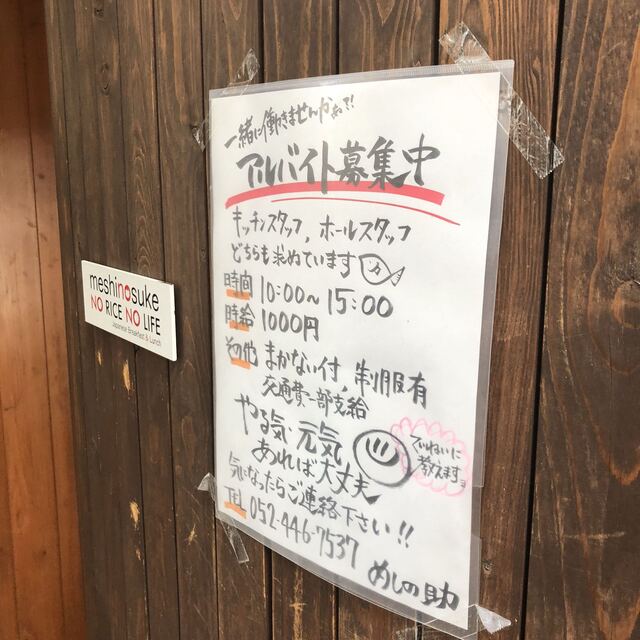 meshinosuke
NO RICE NO LIFE
Japanese Breakfast & Lunch
一緒に働きませんかぁ?!
アルバイト募集中
キッチンスタッフ, ホールスタッフ
どちらも求めています
時間 10:00~15:00
時給 1000円
その他 まかない付, 制服有
交通費一部支給
やる気 元気
あれば大丈夫
ていねいに
教えます
気になったらご連絡下さい!!
TEL 052-446-7537
めしの助